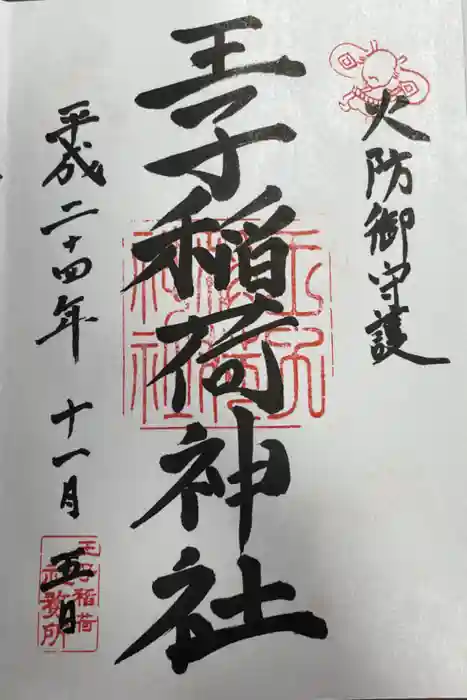 火防御守護
王子稲荷神社
平成二十四年 十一月 五日
王子稲荷
社務所